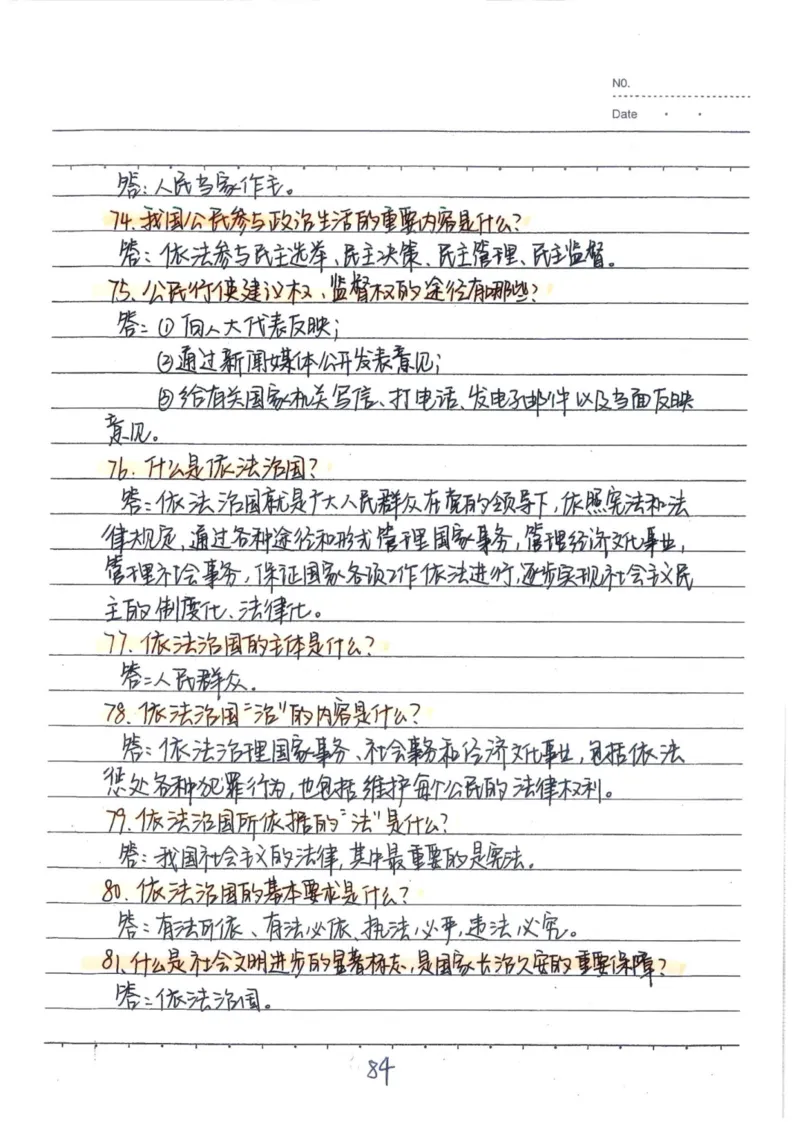 NO.
Date
答：人民当家作主。
74.我国公民参与政治生活的重要内容是什么？
答：依法参与民主选举、民主决策、民主管理、民主监督。
75.公民行使建议权、监督权的途径有哪些？
答：①向人大代表反映；
②通过新闻媒体公开发表意见；
③给有关国家机关写信、打电话、发电子邮件以及当面反映
意见。
76.什么是依法治国？
答：依法治国就是广大人民群众在党的领导下，依照宪法和法
律规定，通过各种途径和形式管理国家事务，管理经济文化事业，
管理社会事务，保证国家各项工作依法进行，逐步实现社会主义民
主的制度化、法律化。
77.依法治国的主体是什么？
答：人民群众。
78.依法治国“治”的内容是什么？
答：依法治理国家事务、社会事务和经济文化事业，包括依法
惩处各种犯罪行为，也包括维护每个公民的法律权利。
79.依法治国所依据的“法”是什么？
答：我国社会主义的法律，其中最重要的是宪法。
80.依法治国的基本要求是什么？
答：有法可依、有法必依、执法必严，违法必究。
81.什么是社会文明进步的显著标志，是国家长治久安的重要保障？
答：依法治国。
84